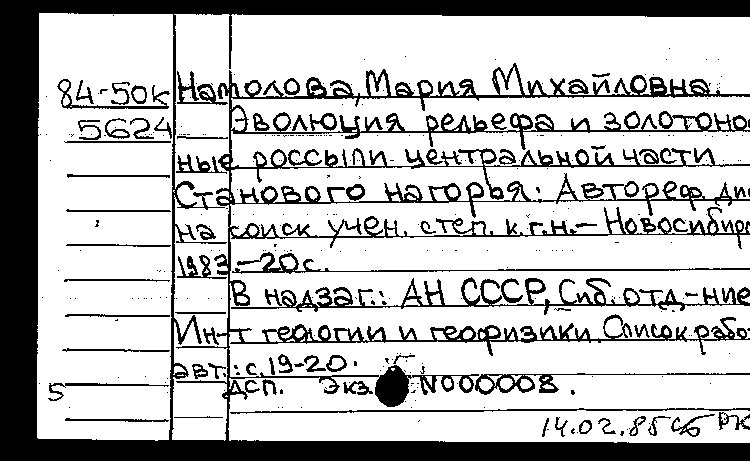 84-50к Натолова, Мария Михайловна.
5624 Эволюция рельефа и золотонос
ные россыпи центральной части
Станового нагорья: Автореф. дис
на соиск учен. степ. к.г.н.- Новосибирс
1983.-20с.
В надзаг.: АН СССР, Сиб. отд,-ние
Ин-т геологии и геофизики. Список работ
авт.: с.19-20.
5 ДСП. Экз. N000008.
14.02.85